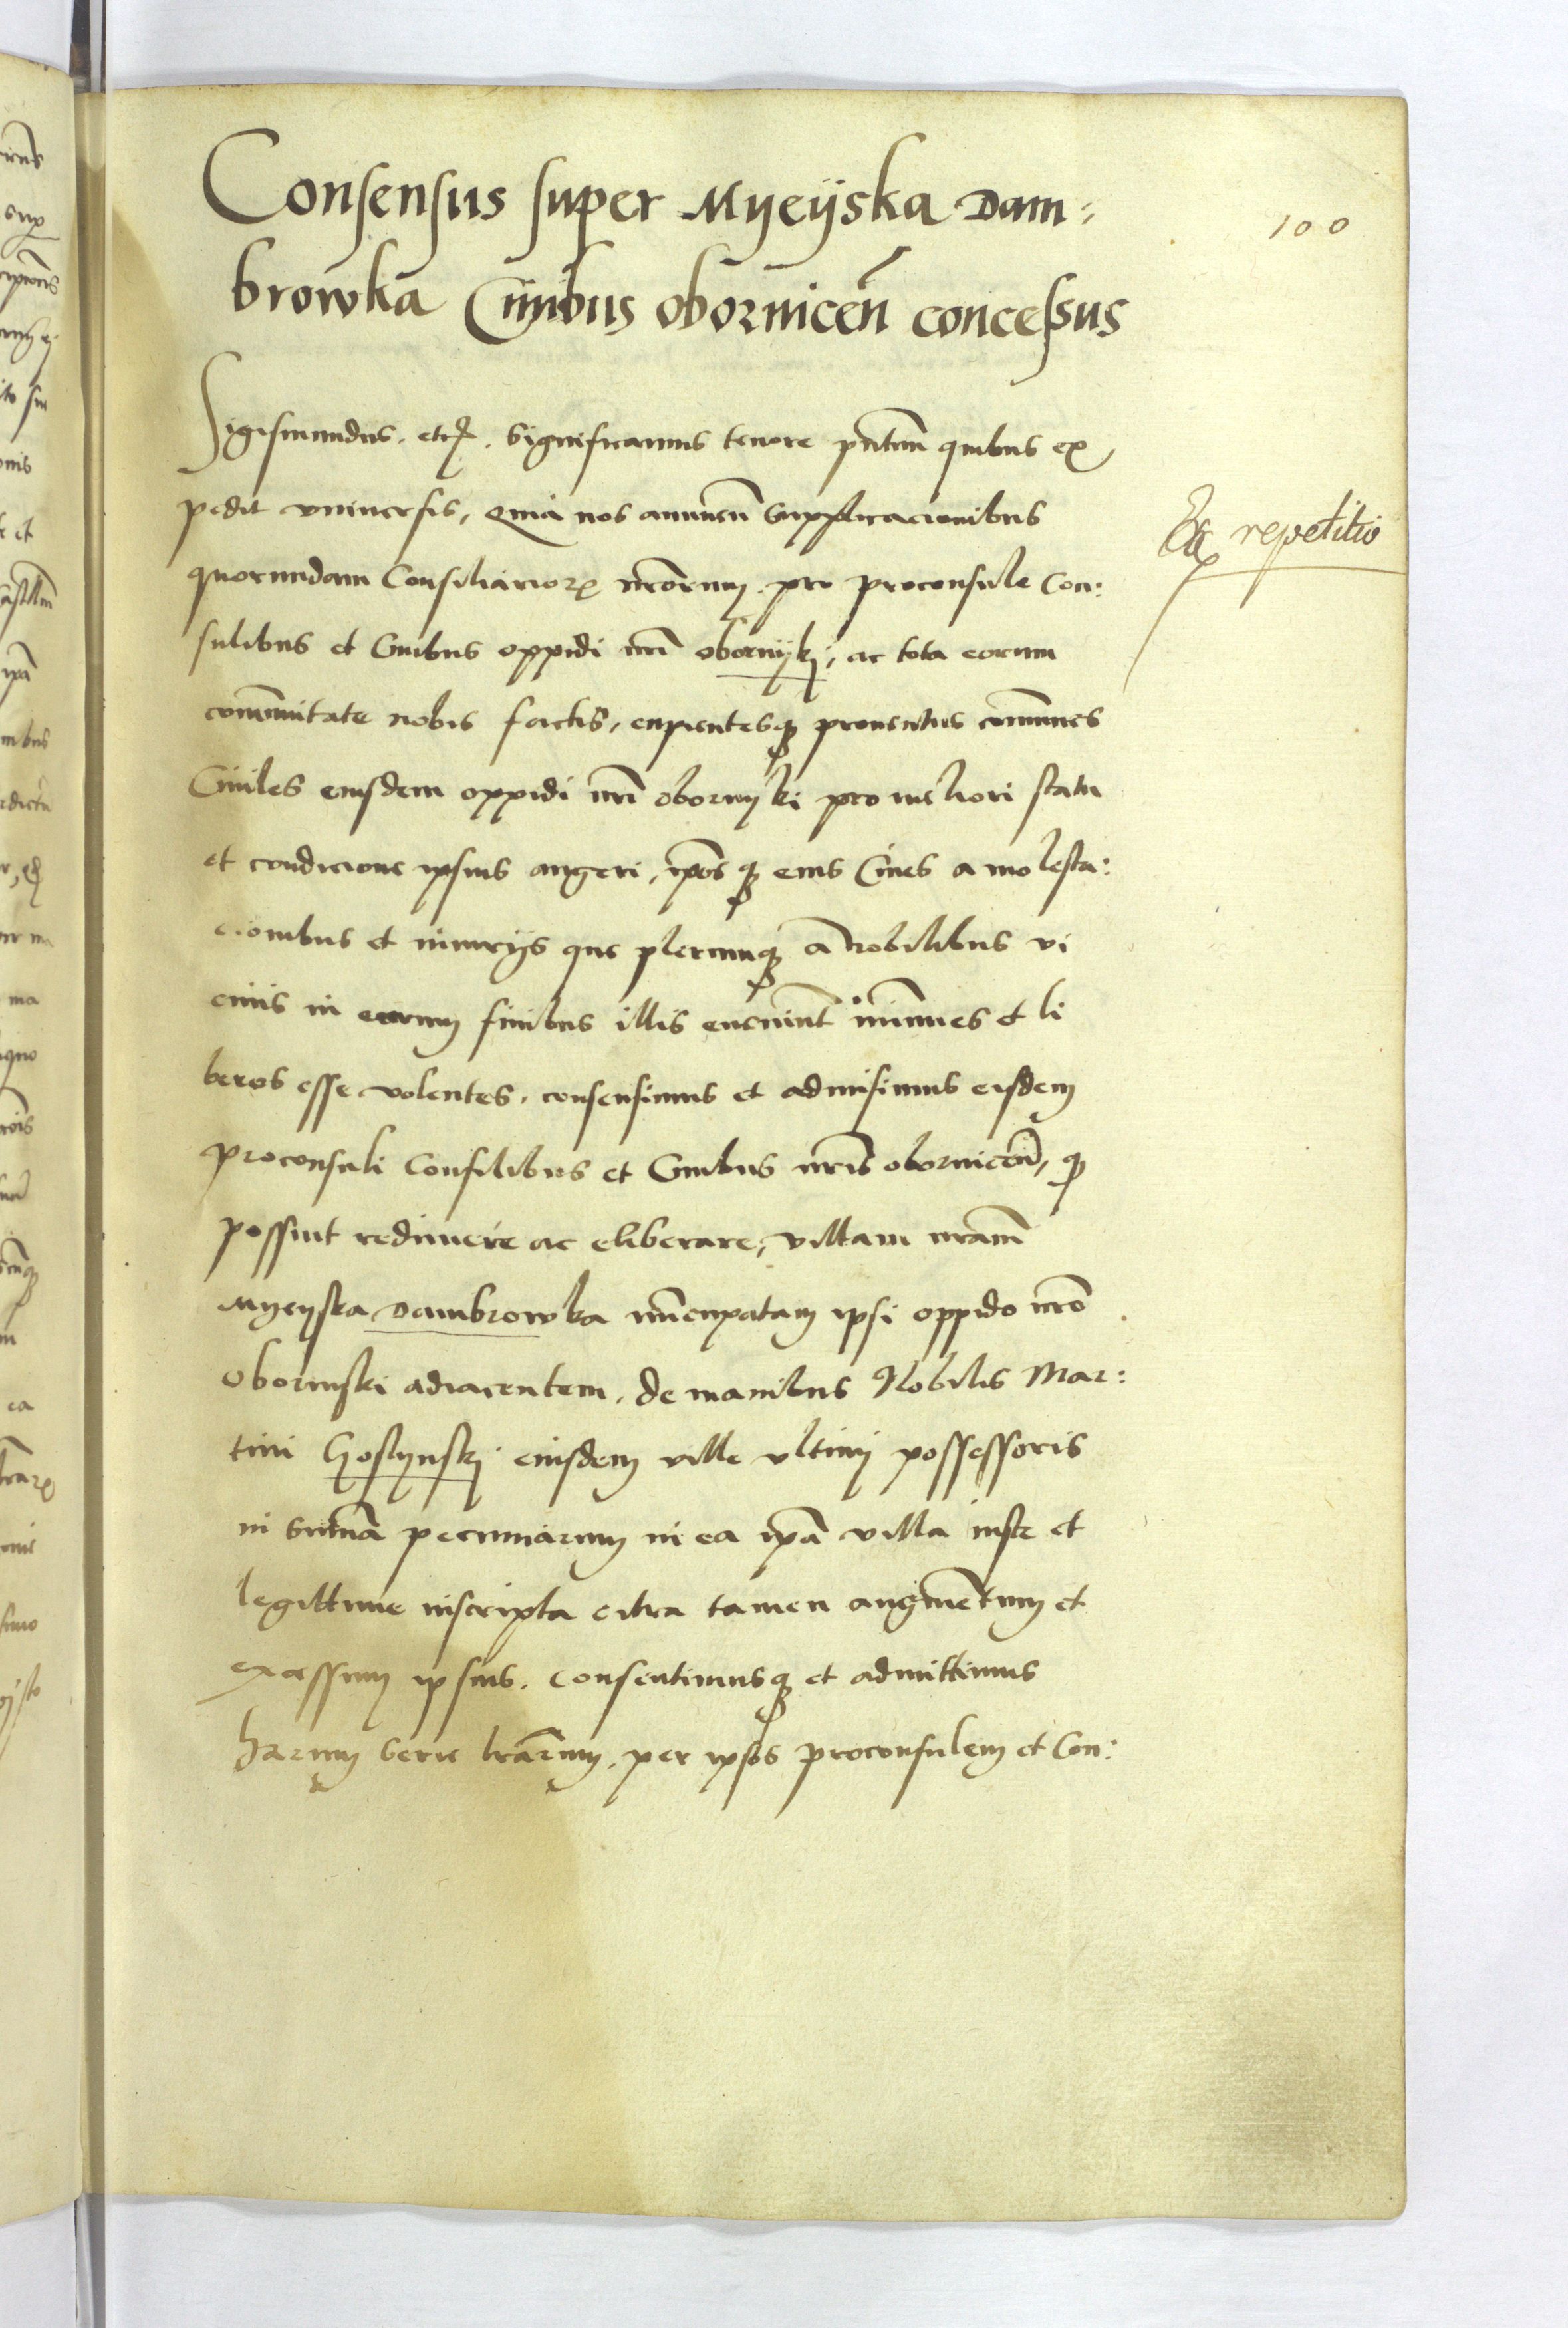 Consensus super Myeyska Dam:
100
browka Ciuibus obornicen̄ concessus
Sigismundus. etc. Significamus tenore pn̄tium quibus ex
pedit vniuersis, Quia nos annuen̄ supplicacionibus
Ex repetitio
quorundam Consiliarior̄ nr̄orum. pro proconsule Con:
sulibus et Ciuibus oppidi nr̄i obornijkj, ac tota eorum
com̄unitate nobis factis, cupientesq̨ prouentus com̄unes
Ciuiles eiusdem oppidi nr̄i obornyki pro meliori statu
et condicione ipsius augeri, ip̄os q̨ eius Ciues a molesta:
cionibus et iniurijs que plerumq̨ a Nobilibus vi
cinis in eorum finibus illis eueniūt im̄unes et li
beros esse volentes. consensimus et admisimus eisdem
proconsuli Consulibus et Ciuibus nr̄is obornicen̄, q̨
possint redimere ac eliberare, villam nr̄am
Myeyska Dambrowka nūcupatam ipsi oppido nr̄o
Obornski adiacentem. de manibus Nobilis Mar:
tini Goslynskj eiusdem ville vltimj possessoris
in sum̄a pecuniarum in ea ip̄a villa iuste et
legittime inscripta citra tamen augmētum et
excessum ipsius. Consentimusq̨ et admittimus
harum serie lr̄arum. per ipsos proconsulem et Con: